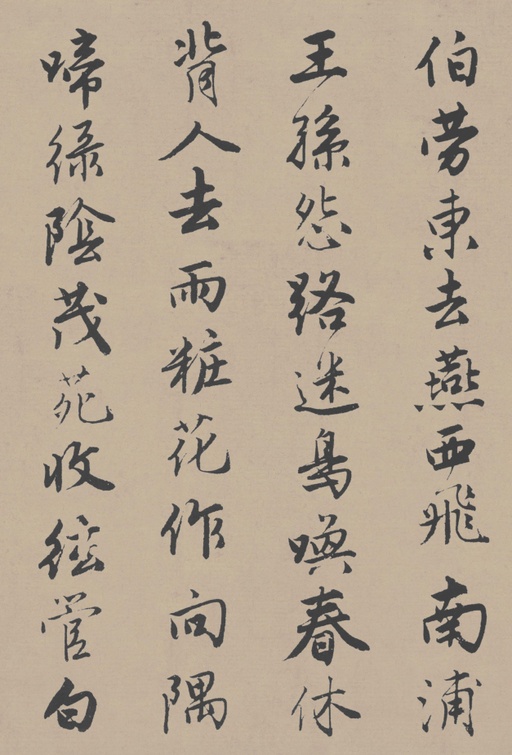 伯劳東去燕西飛南浦
王孫怨路迷鳥喚春休
背人去雨粧花作向隅
啼緑陰茂苑收絃管白